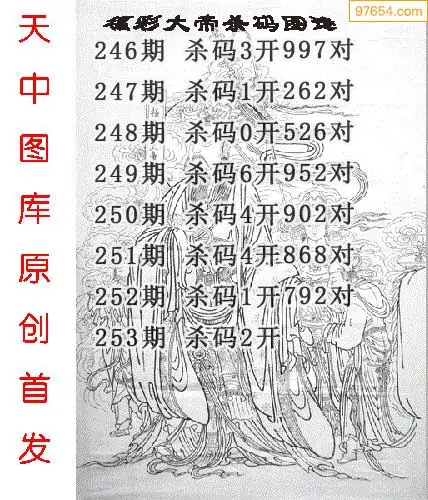 97654.com
福彩大帝杀码图迷
246期 杀码3开997对
247期 杀码1开262对
248期 杀码0开526对
249期 杀码6开952对
250期 杀码4开902对
251期 杀码4开868对
252期 杀码1开792对
253期 杀码2开
天中图库原创首发